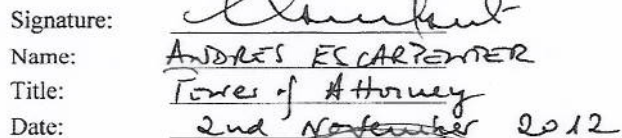 Signature:
Name: ANDRES ESCARPENTER
Title: Power of Attorney
Date: 2nd November 2012